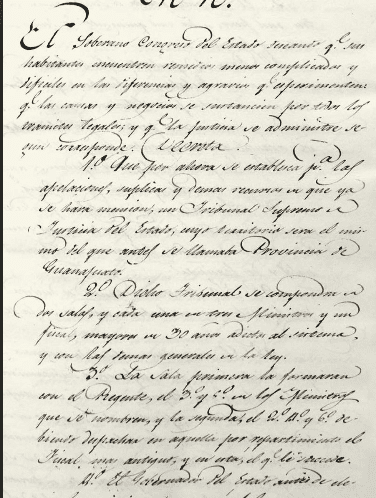 El Soberano Congreso del Estado deseando q.e sus
habitantes encuentren remedios menos complicados y
dificiles en las diferencias y agravios q.e esperimenten:
q.e las causas y negocios se sustancien por todos los
tramites legales; y q.e la Justicia se administre se-
gun corresponde. Decreta.
1.o Que por ahora se establece p.a las
apelaciones, suplica y demas recursos de que ya
se hará mencion, un Tribunal Supremo de
Justicia del Estado, cuyo territorio será el mis-
mo del que antes se llamaba Provincia de
Guanajuato.
2.o Dicho Tribunal se compondra de
dos salas, y cada una de tres Ministros y un
fiscal, mayores de 30 años adictos al sistema,
y con las demas generales de la ley.
3.o La sala primera la formaran
con el Regente, el 3.o y 5.o de los Ministros
que se nombren, y la segunda, el 2.o 4.o y 6.o de-
biendo despachar en aquella por repartimiento el
Fiscal mas antiguo, y en esta, el q.e le sucede.
4.o El Gobernador del Estado, antes de ele-